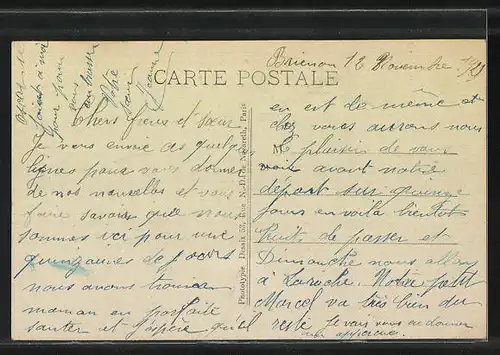 Brienon 12 Novembre 1929
CARTE POSTALE
Chers frères et sœur
Je vous envoie ces quelques
lignes pour vous donner
de nos nouvelles et vous
faire savoir que nous
sommes ici pour une
quinzaine de jours
nous avons trouver
maman en parfaite
santer et j'espère qu'il
en est de même
chez vous aurons nous
le plaisir de vous
voir avant notre
départ sur quinze
jours en voila bientôt
huits de passer et
Dimanche nous allons
à Laroche. Notre petit
Marcel va très bien du
reste je vais vous en donner
un apperçue.
Phototypie Dessaix 53, Rue N.-D. de Nazareth, Paris
a vous
pour
embrasser
Votre
Jeanne